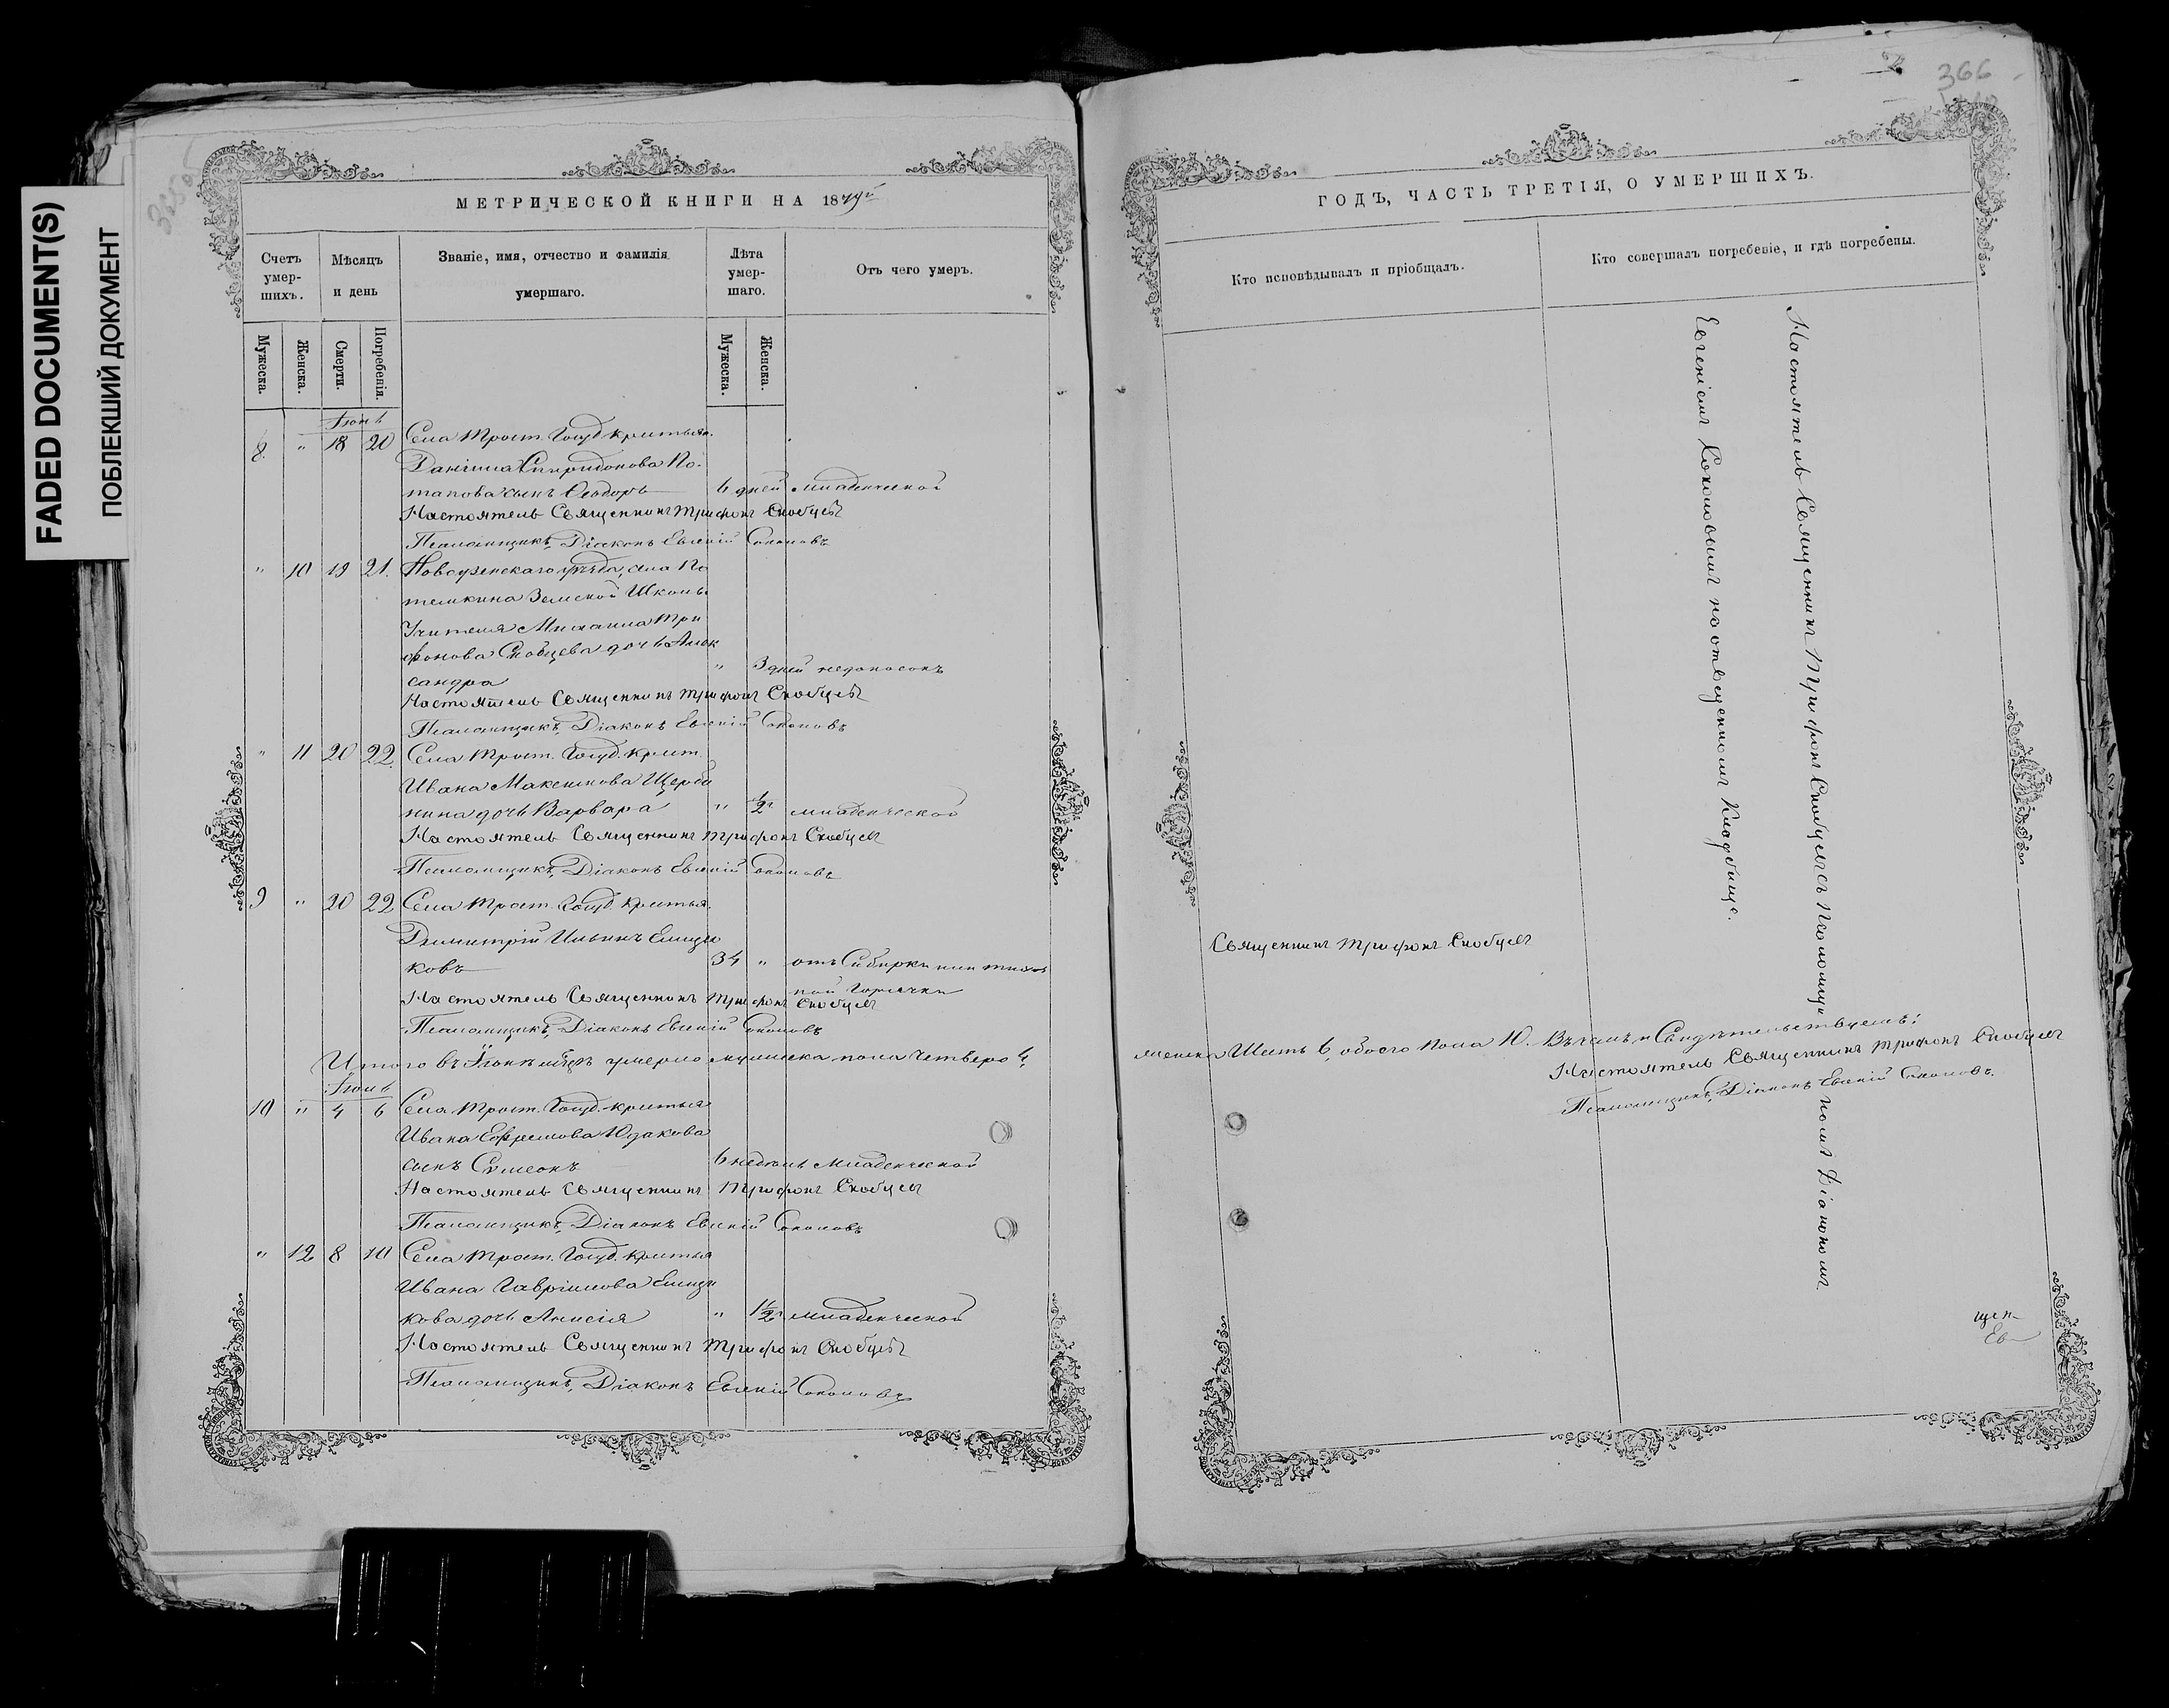 FADED DOCUMENT(S)
ПОБЛЕКШИЙ ДОКУМЕНТ
366
МЕТРИЧЕСКОЙ КНИГИ НА 1879й
Счетъ умершихъ.
Мѣсяцъ и день
Званіе, имя, отчество и фамилія умершаго.
Лѣта умершаго.
Отъ чего умеръ.
Мужеска.
Женска.
Смерти.
Погребенія.
Мужеска.
Женска.
Іюнь
8 " 18 20 Села Трост. Госуд. крестьян.
Даніила Спиридонова По-
тапова сынъ Ѳеодоръ 6 дней младенческой
Настоятель Священникъ Трифонъ Скобцевъ
Псаломщикъ, Діаконъ Евгеній Соколовъ
" 10 19 21 Новоузенскаго уѣзда, села По
темкина Земской Школы
Учителя Михаила Три
фонова Скобцева дочь Алек
сандра " 3 дней недоносокъ
Настоятель Священникъ Трифонъ Скобцевъ
Псаломщикъ, Діаконъ Евгеній Соколовъ
" 11 20 22 Села Трост. Госуд. крест.
Ивана Максимова Щерба
нина дочь Варвара " ½ г младенческой
Настоятель Священникъ Трифонъ Скобцевъ
Псаломщикъ, Діаконъ Евгеній Соколовъ
9 " 20 22 Села Трост. Госуд. крестья.
Димитрій Ильинъ
ковъ 34 " отъ Сибирки или
ной Горячки
Настоятель Священникъ Трифонъ Скобцевъ
Псаломщикъ, Діаконъ Евгеній Соколовъ
Итого въ Іюнѣ мѣсяцѣ умерло мужеска пола Четверо 4,
Іюль
10 " 4 6 Села Трост. Госуд. крестья
Ивана Ефремова Юдакова
сынъ Симеонъ 6 недѣль Младенческой
Настоятель Священникъ Трифонъ Скобцевъ
Псаломщикъ, Діаконъ Евгеній Соколовъ
" 12 8 10 Села Трост. Госуд. крестья
Ивана Гавріилова
кова дочь Анисія " 1½ г младенческой
Настоятель Священникъ Трифонъ Скобцевъ
Псаломщикъ, Діаконъ Евгеній Соколовъ
ГОДЪ, ЧАСТЬ ТРЕТІЯ, О УМЕРШИХЪ.
Кто исповѣдывалъ и пріобщалъ.
Кто совершалъ погребеніе, и гдѣ погребены.
Настоятель Священникъ Трифонъ Скобцевъ съ Псаломщикомъ Діакономъ
Евгеніемъ Соколовымъ на отведенномъ Кладбищѣ.
Священникъ Трифонъ Скобцевъ
женска Шесть 6, обоего пола 10. Въ чемъ и Свидѣтельствуемъ:
Настоятель Священникъ Трифонъ Скобцевъ
Псаломщикъ, Діаконъ Евгеній Соколовъ.
щен
Ев